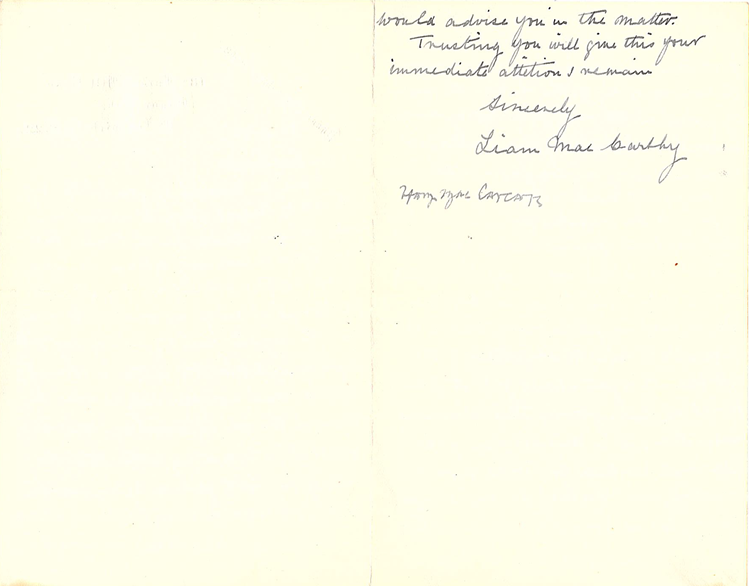 would advise you in the matter.
Trusting you will give this your
immediate attition I remain
Sincerely
Liam Mac Carthy